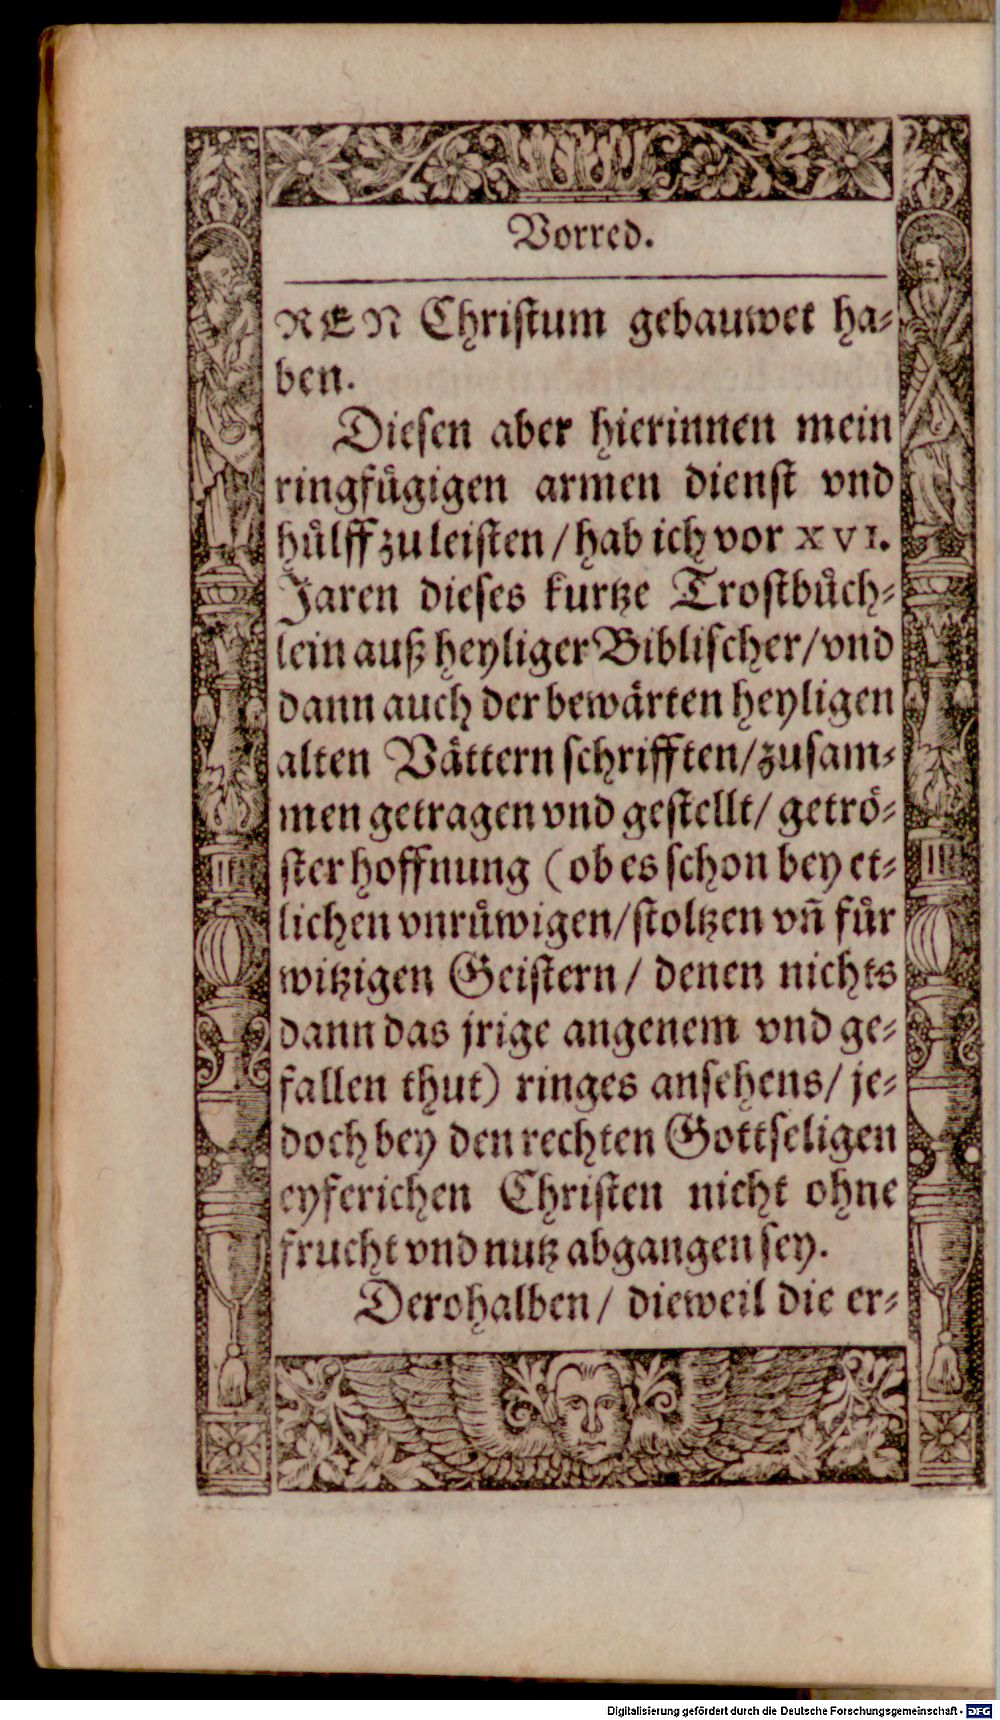 Vorred.
REN Christum gebauwet ha⸗
ben.
Diesen aber hierinnen mein
ringfuͤgigen armen dienst vnd
huͤlff zu leisten / hab ich vor XVI.
Jaren dieses kurtze Trostbuͤch⸗
lein auß heyliger Biblischer / vnd
dann auch der bewaͤrten heyligen
alten Vaͤttern schrifften / zusam⸗
men getragen vnd gestellt / getroͤ⸗
ster hoffnung (ob es schon bey et⸗
lichen vnruͤwigen / stoltzen vn̄ fuͤr
witzigen Geistern / denen nichts
dann das jrige angenem vnd ge⸗
fallen thut) ringes ansehens / je⸗
doch bey den rechten Gottseligen
eyferichen Christen nicht ohne
frucht vnd nutz abgangen sey.
Derohalben / dieweil die er⸗
Digitalisierung gefördert durch die Deutsche Forschungsgemeinschaft - DFG